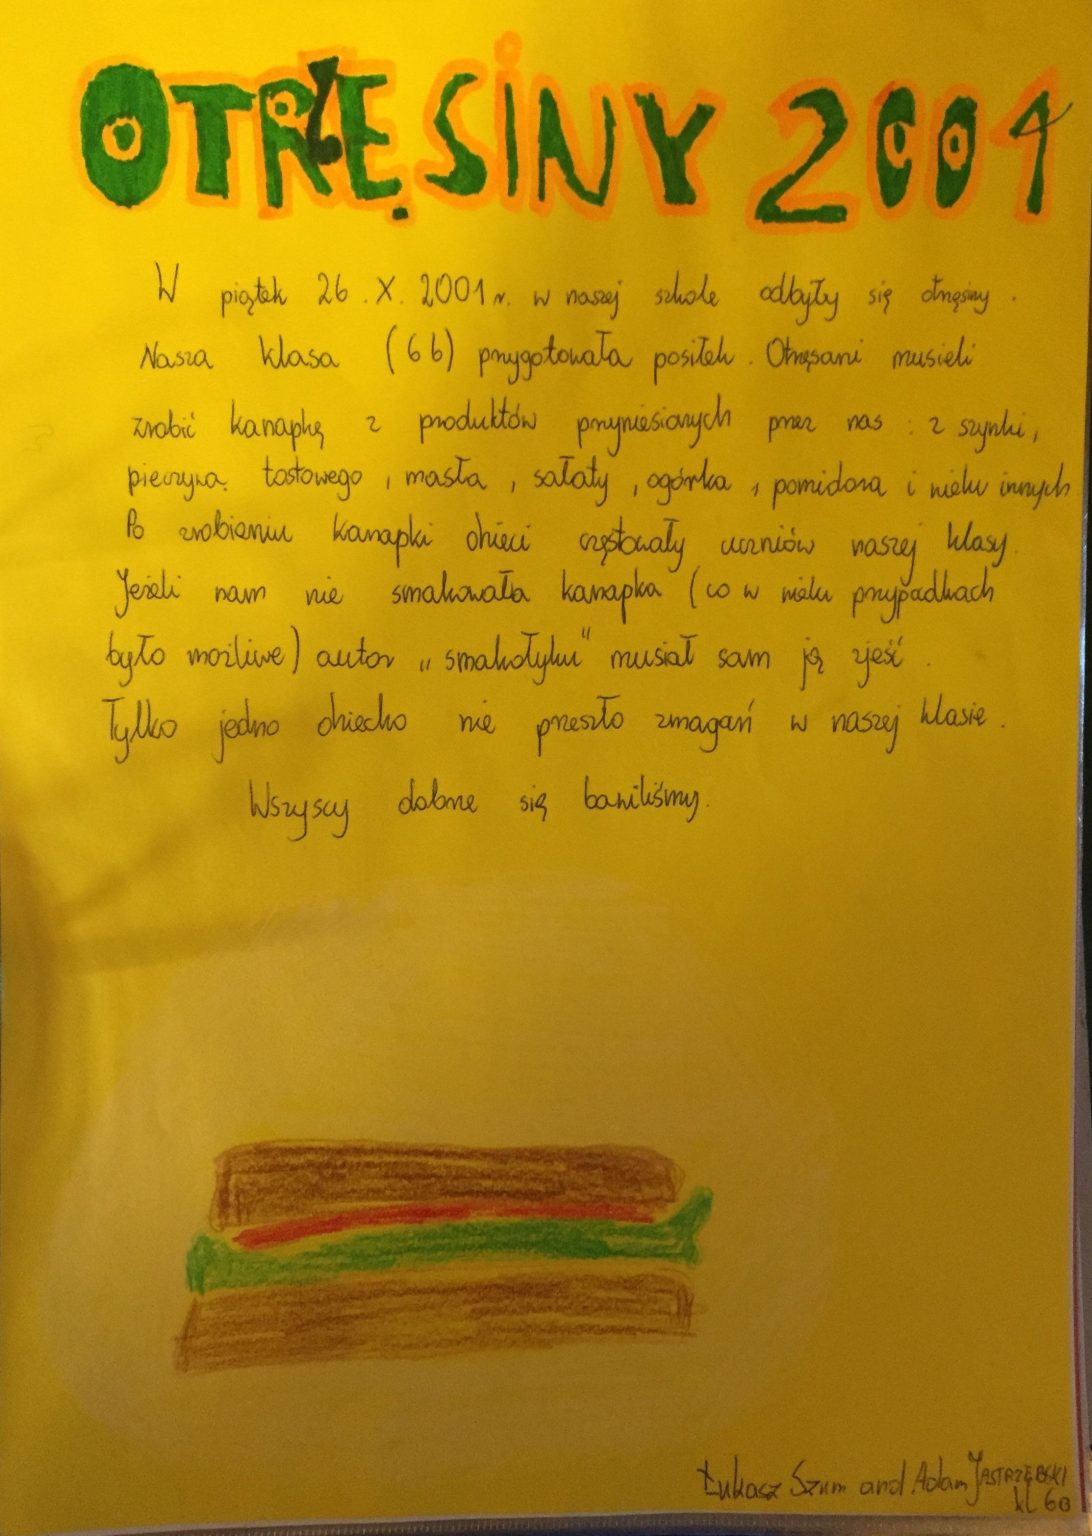 OTRZĘSINY 2001
W piątek 26.X.2001r. w naszej szkole odbyły się otrzęsiny.
Nasza klasa (6b) przygotowała posiłek. Otrzęsani musieli
zrobić kanapkę z produktów przyniesionych przez nas: z szynki,
pieczywa tostowego, masła, sałaty, ogórka, pomidora i wielu innych
Po zrobieniu kanapki dzieci częstowały uczniów naszej klasy.
Jeżeli nam nie smakowała kanapka (co w wielu przypadkach
było możliwe) autor „smakołyku" musiał sam ją zjeść.
Tylko jedno dziecko nie przeszło zmagań w naszej klasie.
Wszyscy dobrze się bawiliśmy.
Łukasz Szum and Adam JASTRZĘBSKI
kl 6B